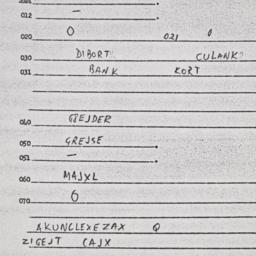 012 — .
020 0 021 0
030 DIBORT CULANK
031 BANK KORT
040 GREJDER
050 GREJSE .
051 — .
060 MAJXL
070 6
AKUNCLEXEZAX Q
ZIGEJT CAJX